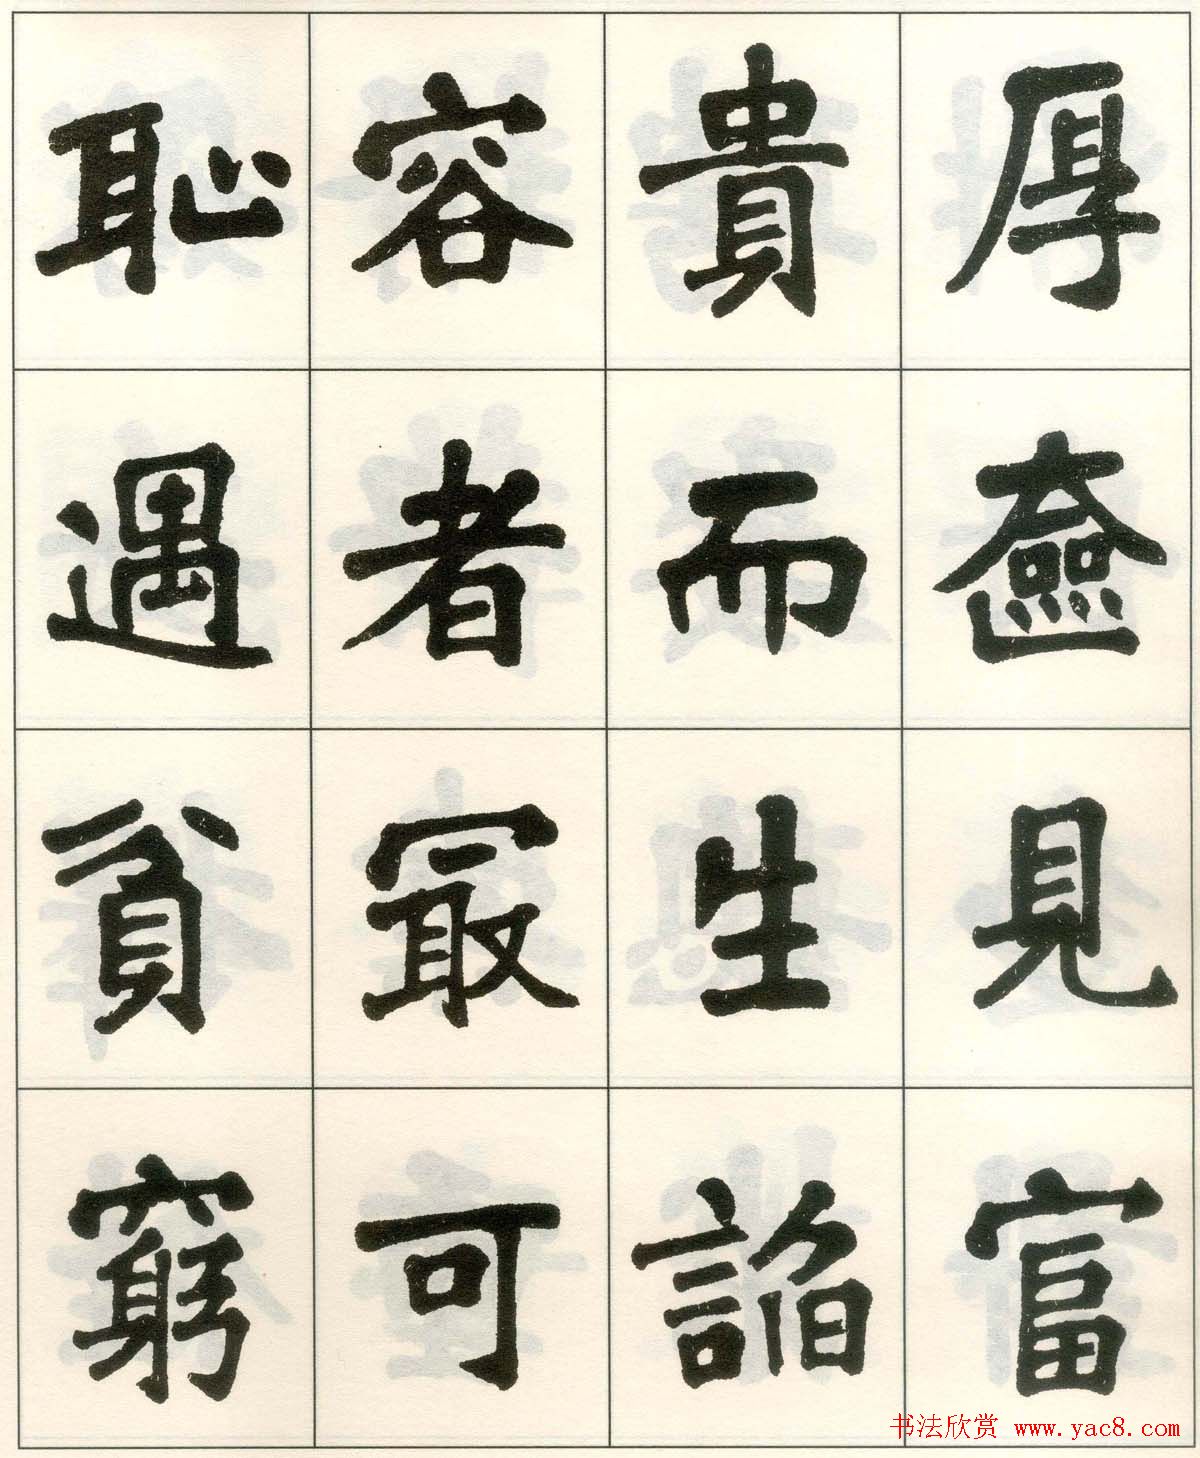 厚奩見富
貴而生諂
容者冣可
恥遇貧窮
书法欣赏 www.yac8.com